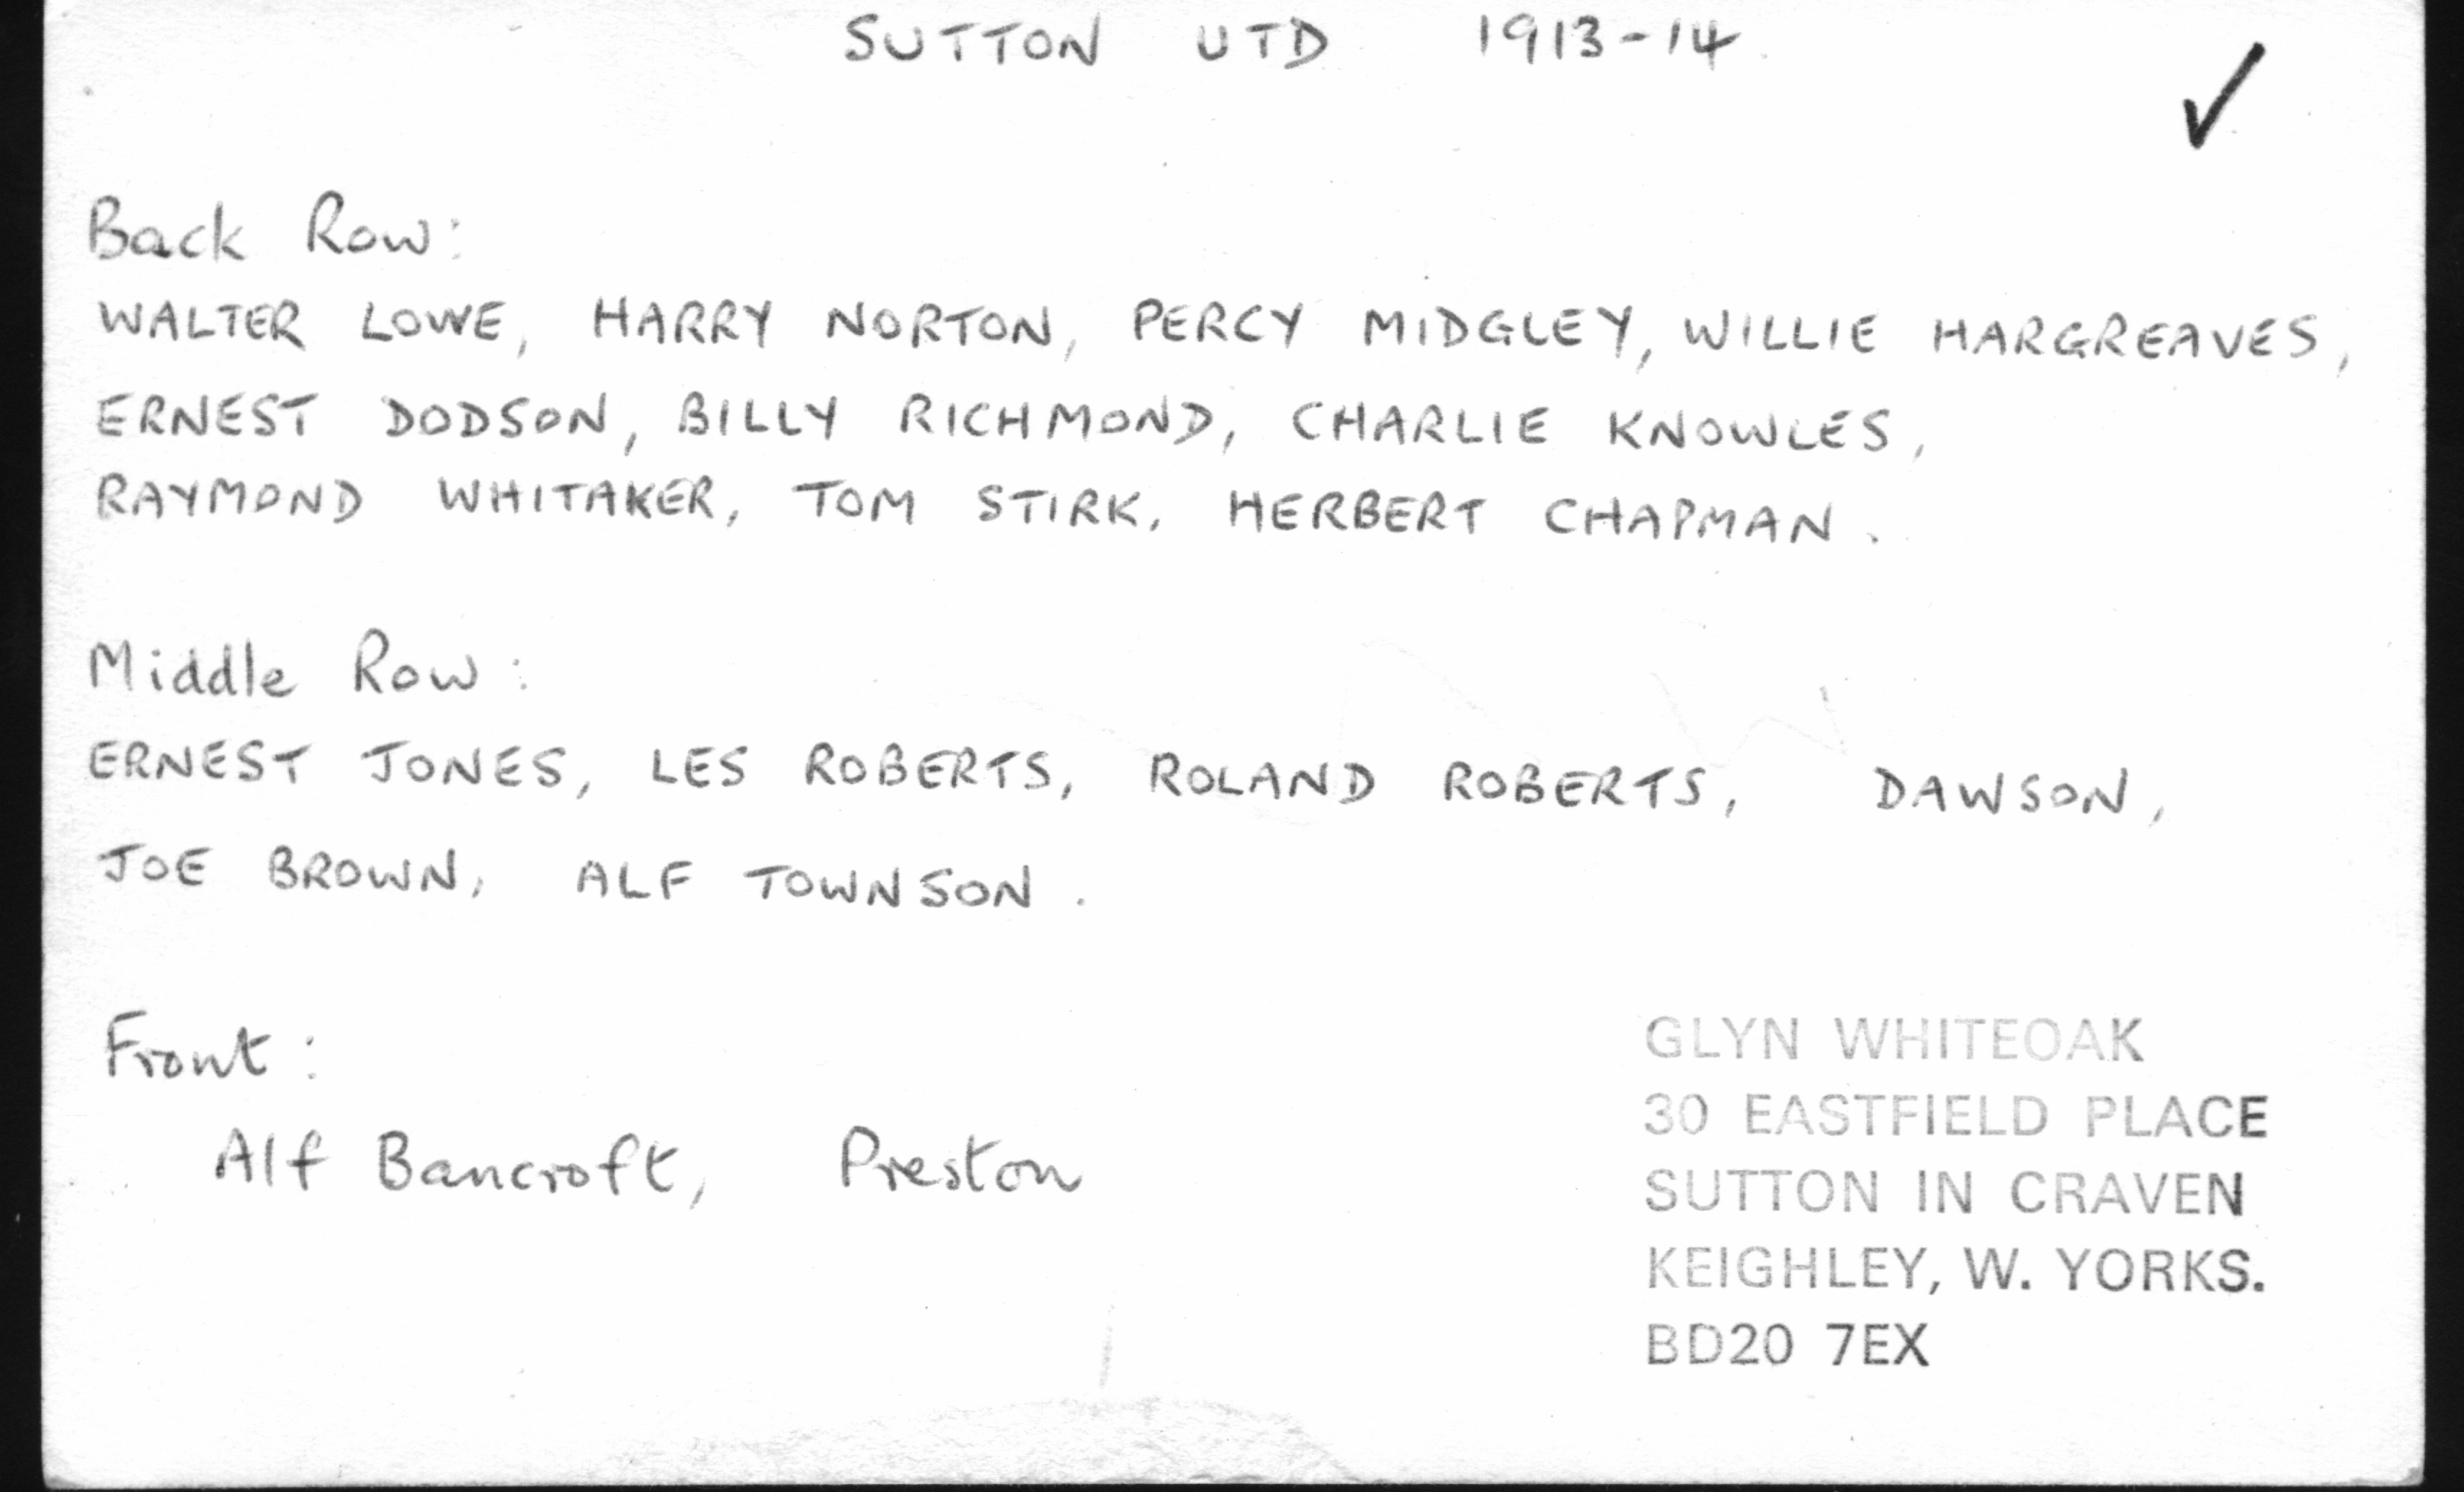 SUTTON UTD 1913-14
Back Row:
WALTER LOWE, HARRY NORTON, PERCY MIDGLEY, WILLIE HARGREAVES,
ERNEST DODSON, BILLY RICHMOND, CHARLIE KNOWLES,
RAYMOND WHITAKER, TOM STIRK, HERBERT CHAPMAN.
Middle Row:
ERNEST JONES, LES ROBERTS, ROLAND ROBERTS, DAWSON,
JOE BROWN, ALF TOWNSON.
Front:
Alf Bancroft, Preston
GLYN WHITEOAK
30 EASTFIELD PLACE
SUTTON IN CRAVEN
KEIGHLEY, W. YORKS.
BD20 7EX